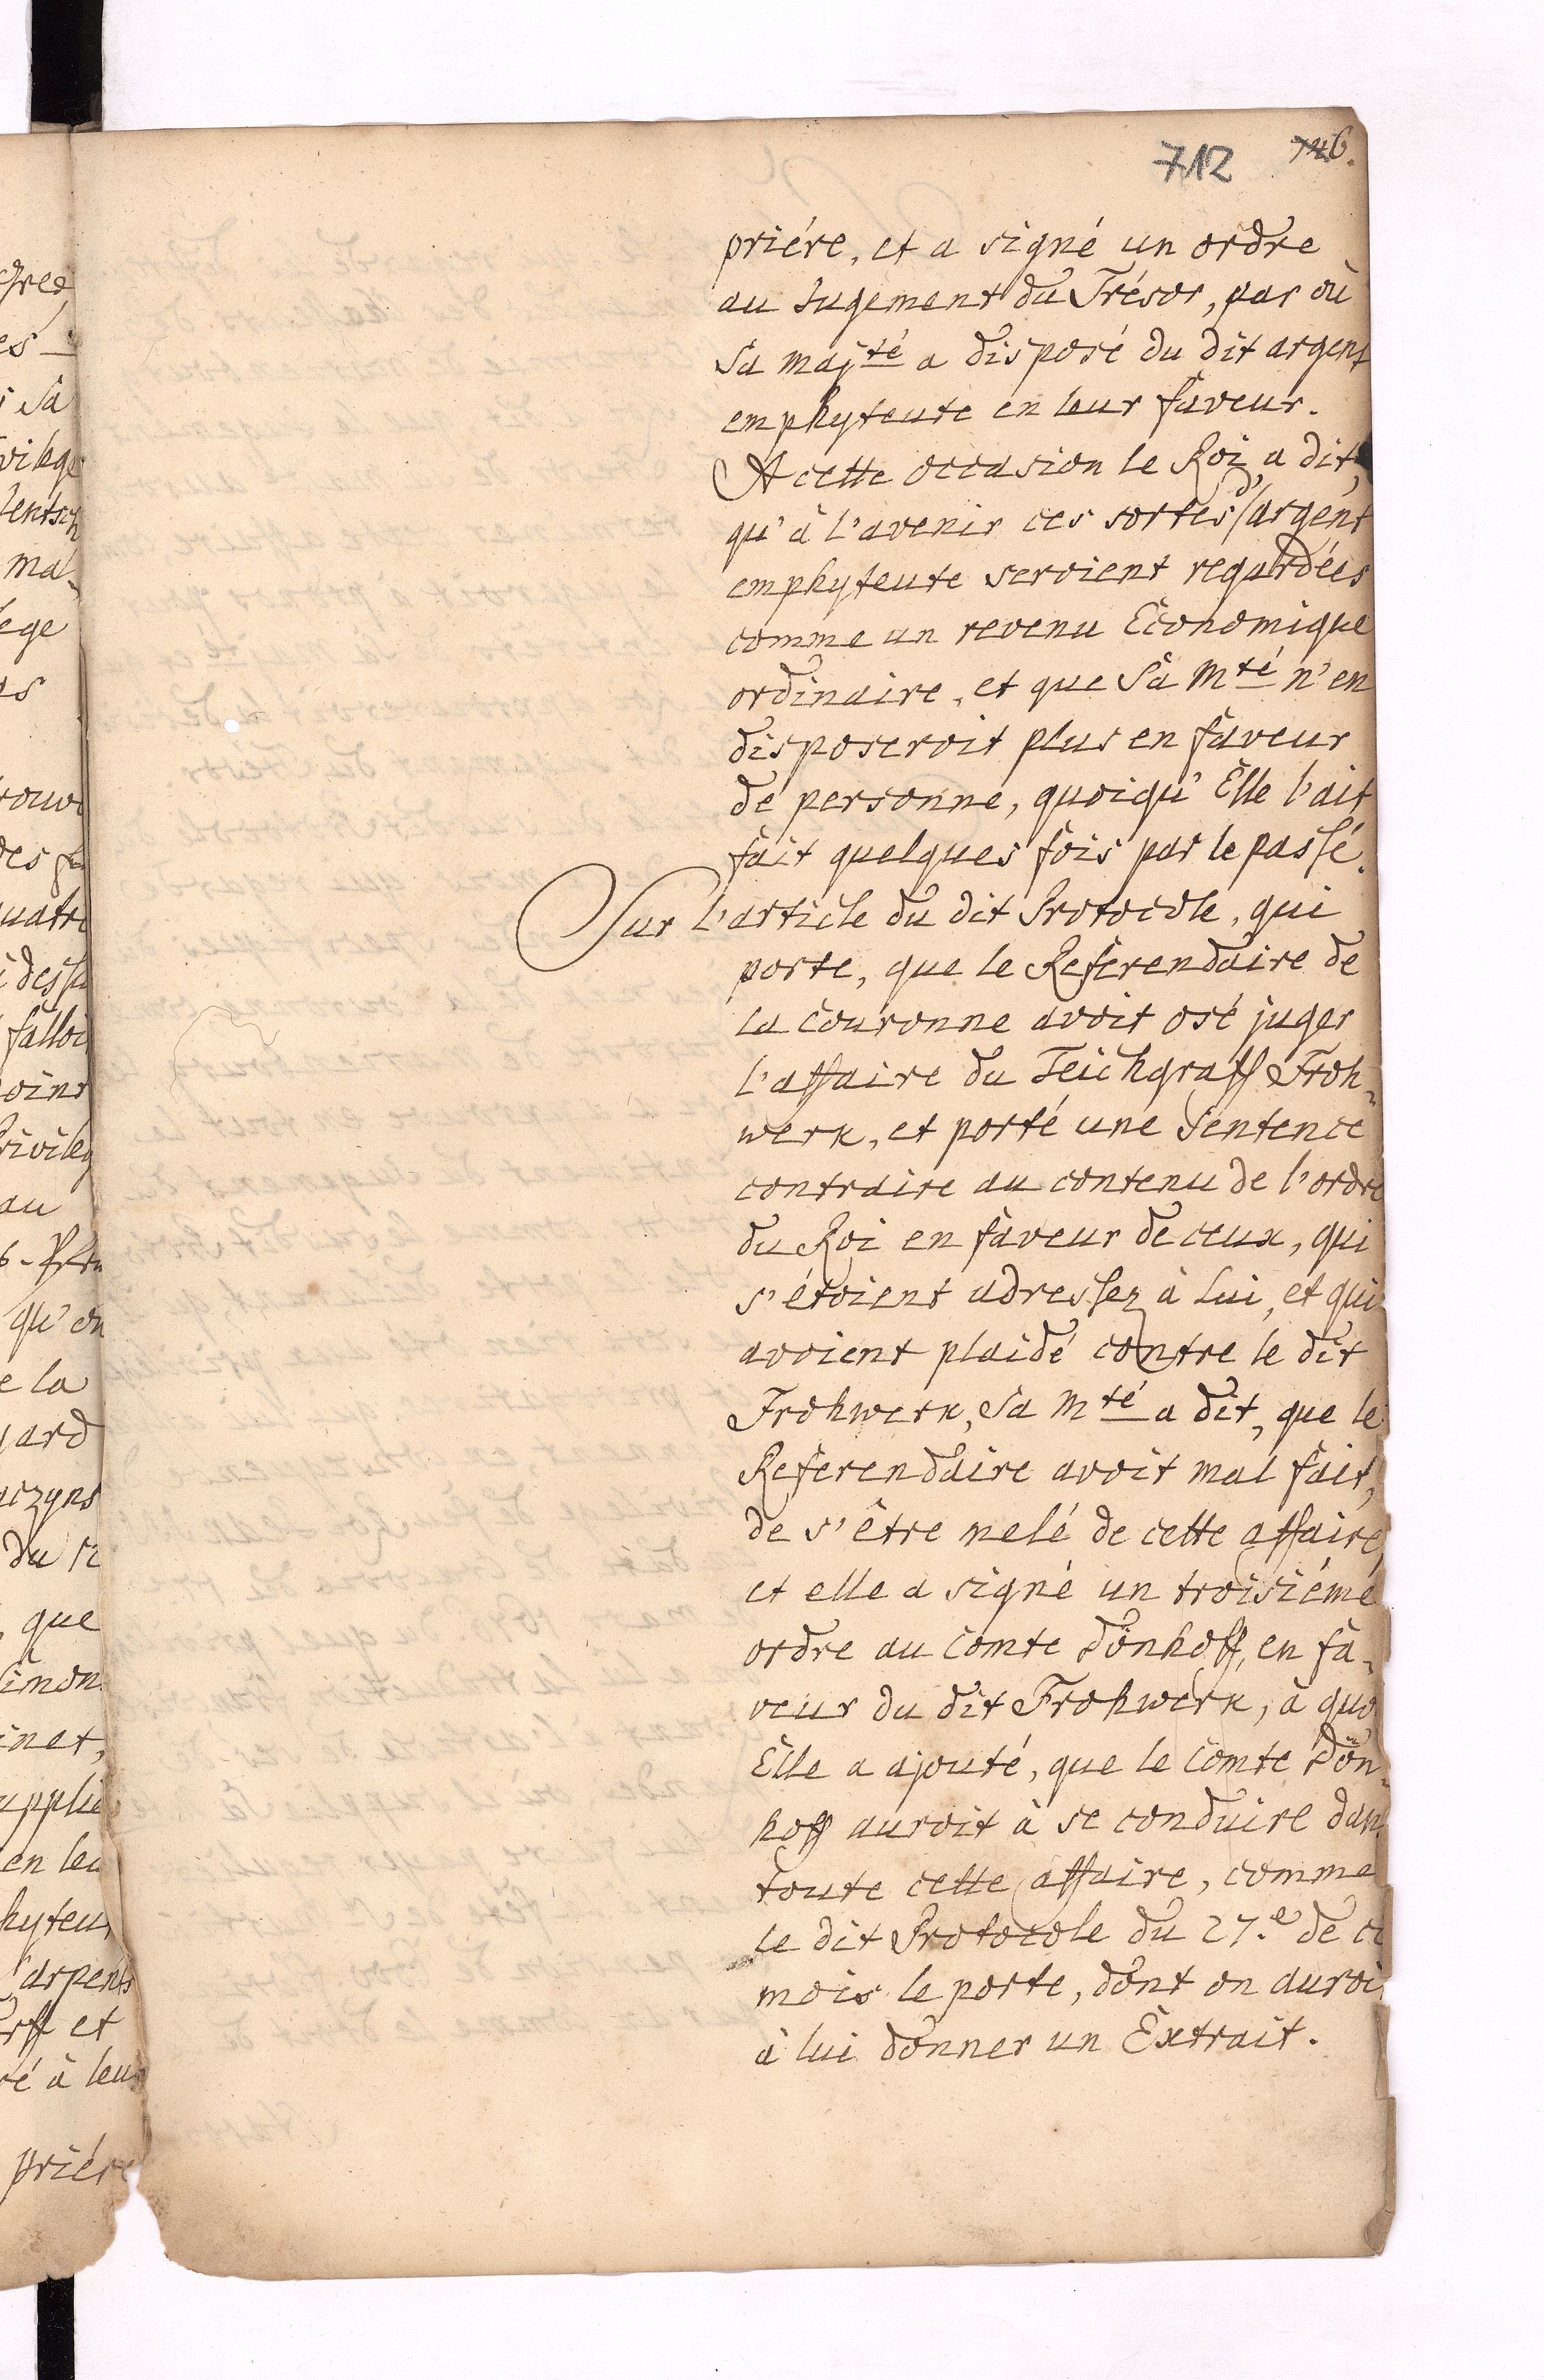 712 746.
priére, et a signé un ordre
au Jugement du Trésor, par où
Sa maj^té a disposé du dit argent
emphyteute en leur faveur.
A cette occasion le Roi a dit,
qu'à l'avenir ces sortes d'argent
emphyteute seroient regardées
comme un revenu Economique
ordinaire, et que Sa M^té n'en
disposeroit plus en faveur
de personne, quoiqu' Elle l'ait
fait quelques fois par le passé.
Sur l'article du dit Protocole, qui
porte, que le Referendaire de
la Couronne avoit osé juger
l'affaire du Teichgraff Froh-
werk, et porté une Sentence
contraire au contenu de l'ordre
du Roi en faveur de ceux, qui
s'étoient adressez à Lui, et qui
avoient plaidé contre le dit
Frohwerk, Sa M^té a dit, que le
Referendaire avoit mal fait,
de s'être melé de cette affaire,
et elle a signé un troisiéme
ordre au Comte Dönhoff, en fa-
veur du dit Frohwerk, à quo
Elle a ajouté, que le Comte Dön-
hoff auroit à se conduire dan
toute cette affaire, comme
le dit Protocole du 27.^e de c
mois le porte, dont on auroi
à lui donner un Extrait.
es
i Sa
ma-
ege
au
qu'on
e la
gard
du
, que
inet,
en leu
arpents
et
à leur
priére